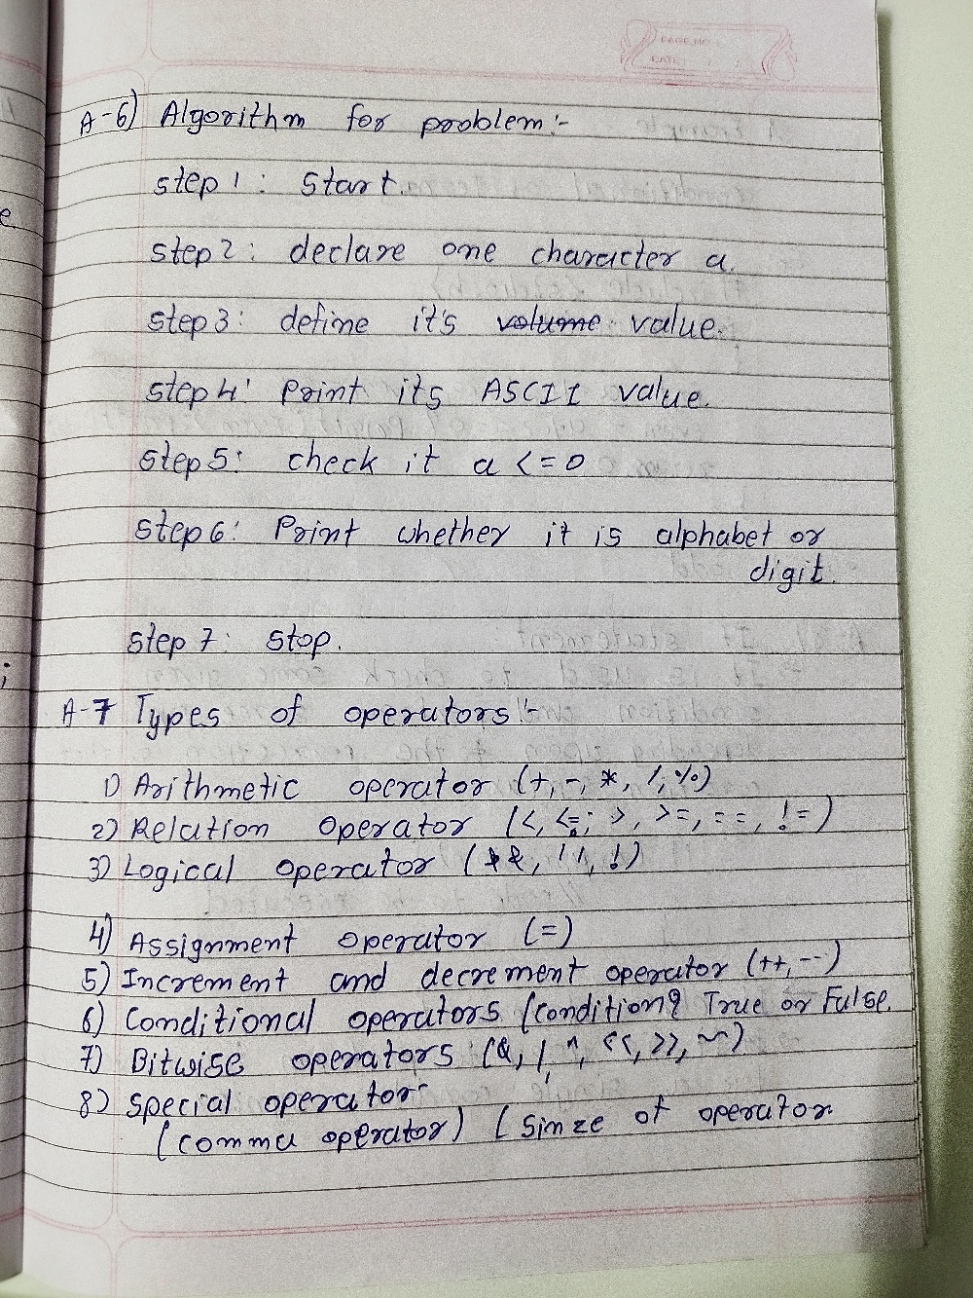 A-6) Algorithm for problem :-
step 1 : Start.
step 2 : declare one character a.
step 3 : define it's volume value.
step 4 : Print its ASCII value.
step 5 : check it a <= 0
step 6 : Print whether it is alphabet or
digit.
step 7 : Stop.
A-7 Types of operators :-
1) Arithmetic operator (+, -, *, /, %)
2) Relation operator (<, <=, >, >=, ==, !=)
3) Logical operator (&&, ||, !)
4) Assignment operator (=)
5) Increment and decrement operator (++, --)
6) Conditional operators (condition? True or False.
7) Bitwise operators (&, |, ^, <<, >>, ~)
8) Special operator
(comma operator) (Sinze of operator